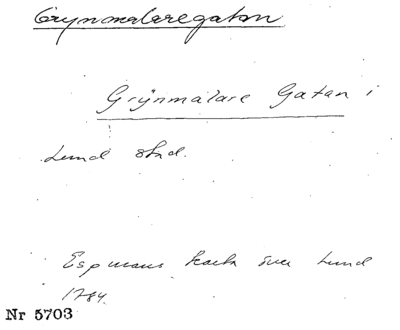 Grynmalaregatan
Grÿnmalare Gatan i
Lund stad.
Espmans karta över Lund
1784.
Nr 5703